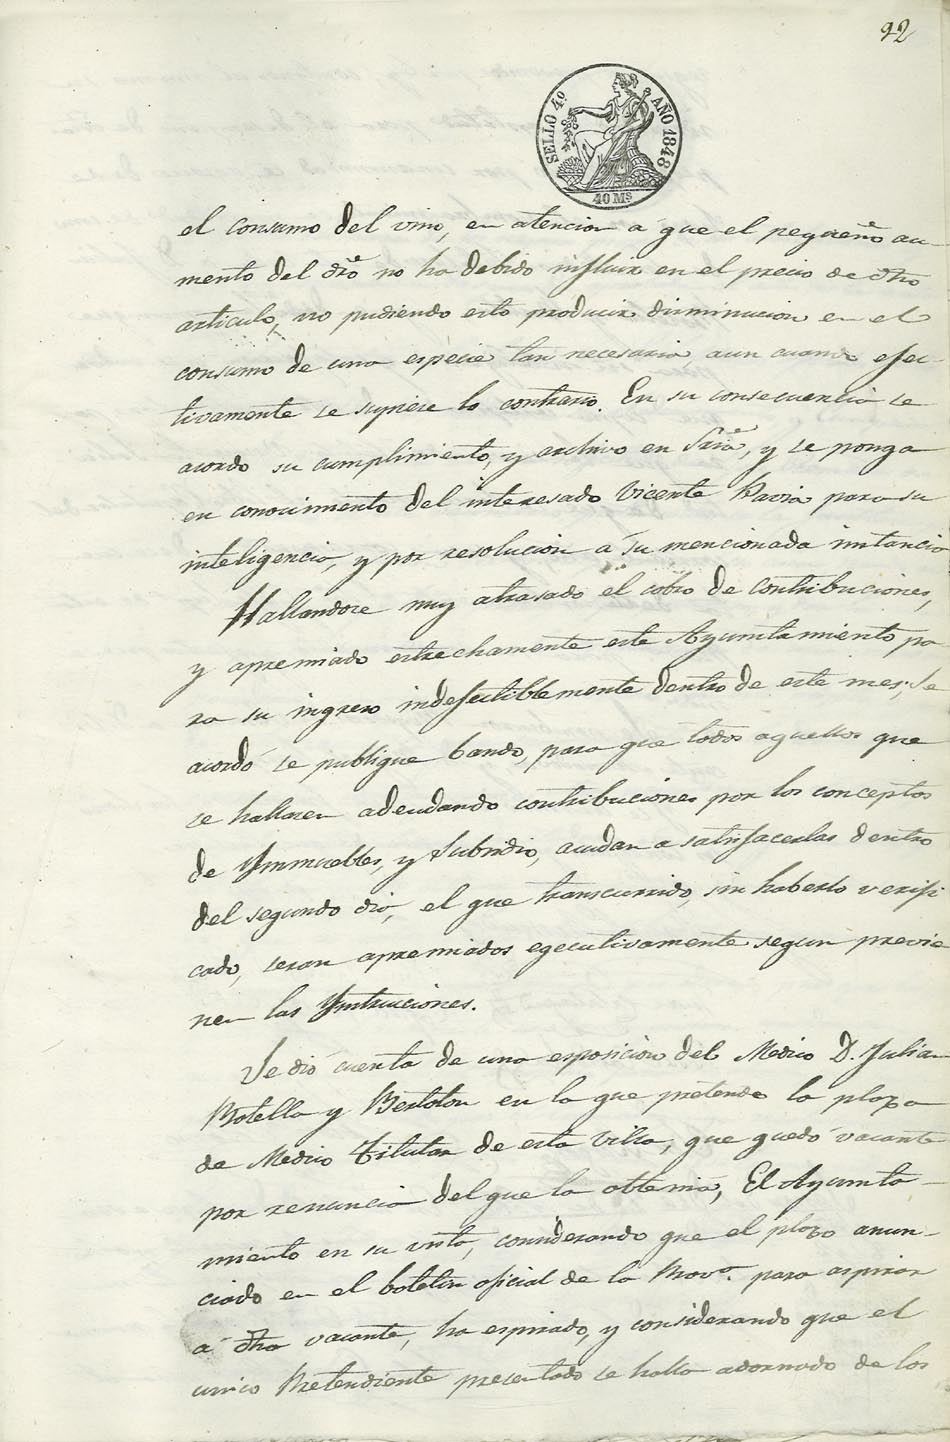 92
SELLO 4º AÑO 1848
40 Ms
el consumo del vino, en atencion á que el pequeño au-
mento del dro no ha debido influir en el precio de dho
articulo, no pudiendo esto producir disminucion en el
consumo de una especie tan necesaria, aun cuando efec-
tivamente se supiese lo contrario. En su consecuencia se
acordo su cumplimiento, y archivo en Sria, y se ponga
en conocimiento del interesado Vicente Pavia para su
inteligencia, y por resolucion á su mencionada instancia
Hallandose muy atrasado el cobro de contribuciones,
y apremiado estrechamente este Ayuntamiento pa-
ra su ingreso indefectiblemente dentro de este mes; Se
acordó se publique bando, para que todos aquellos que
se hallasen adeudando contribuciones por los conceptos
de Ynmuebles, y Subsidio, acudan a satisfacerlas dentro
del segundo dia, el que transcurrido, sin haberlo verifi
cado, seran apremiados egecutivamente segun previe
nen las Ynstruciones.
Se dió cuenta de una esposicion del Medico D. Julian
Botella y Bertolon en la que pretende la plaza
de Medico Titular de esta Villa, que quedó vacante
por renuncia del que la obtenia, El Ayunta-
miento en su vista, considerando que el plazo anun-
ciado en el boletin oficial de la Prova. para aspirar
á dha vacante, ha espirado, y considerando que el
unico Pretendiente presentado se halla adornado de los